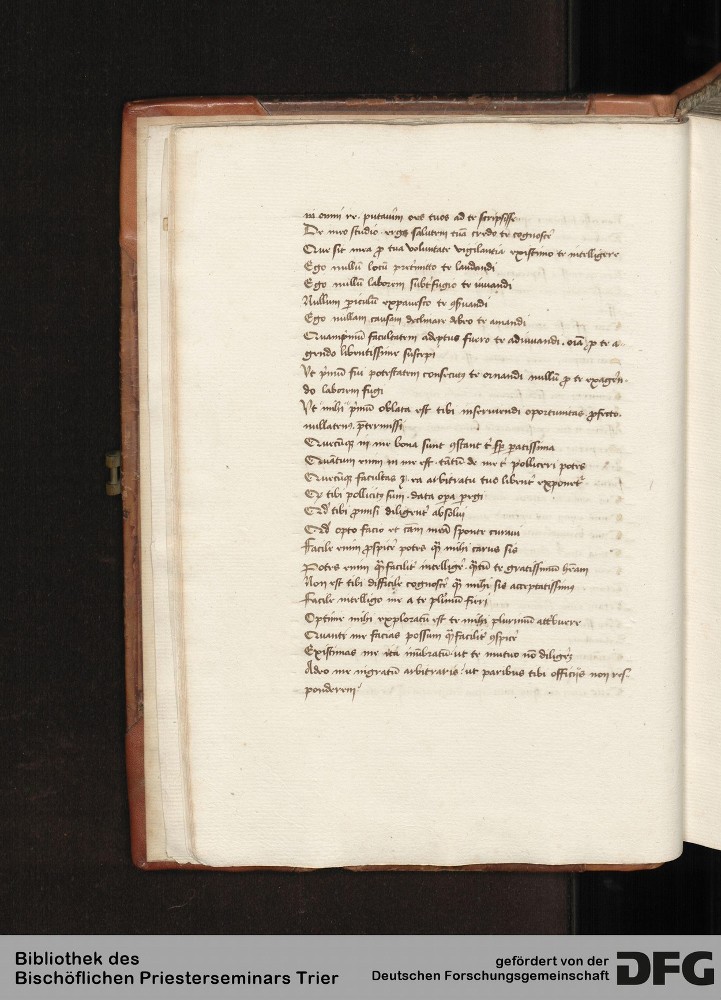 in omni re. putavi͂m o͂es tuos ad te scripsisse.
De meo studio erga salutem tua͂ credo te cognosce͂
Que sit mea ꝓ tua voluntate vigilantia existimo te intelligere
Ego nullu͂ locu͂ pretmitto te laudandi
Ego nullu͂ laborem subterfugio te iuuandi
Nullum ꝑiculu͂ expauesco te ꝯseruandi
Ego nullam causam declinare debeo te amandi
Quamprimu͂ facultatem adeptus fuero te adiuuandi. oi͂a ꝓ te a-
gendo libentissime suscepi
Vt primu͂ fui potestatem consecutus te ornandi nullu͂ ꝓ te
do laborem fugi
Vt mihi primu͂ oblata est tibi inseruiendi oportunitas ꝓfecto.
nullatenus p͂termissi
Quecu͂qꝫ in me bona sunt ꝯstant t͂ sp͂ paratissima
Qua͂tum enim in me est. ta͂tu͂ de me t͂ polliceri potes
Quecu͂qꝫ facultas ea arbitratu tuo libent͂ exponet͂
Q tibi pollicitus sum. data op͂a pegi
Qd͂ tibi ꝓmisi diligent͂ absolui
Qd͂ opto facio et ca͂m mea͂ sponte curaui
Facile enim ꝑspice͂ potes q͂ mihi carus sis
Potes enim q͂ facilit͂ intellige͂. qua͂tu͂ te gratissimu͂ hea͂m
Non est tibi difficile cognosce͂ q͂ mihi sis acceptatissimus
Facile intelligo me a te plimu͂ fieri
Optime mihi exploratu͂ est te mihi plurimu͂ attribuere
Quanti me facias possum q͂ facilit͂ ꝯspice͂
Existimas me ita ut te mutuo no͂ diligere͂
Adeo me ingratu͂ arbitraris: ut paribus tibi officijs non res-
ponderem
Bibliothek des
Bischöflichen Priesterseminars Trier
gefördert von der
Deutschen Forschungsgemeinschaft
DFG